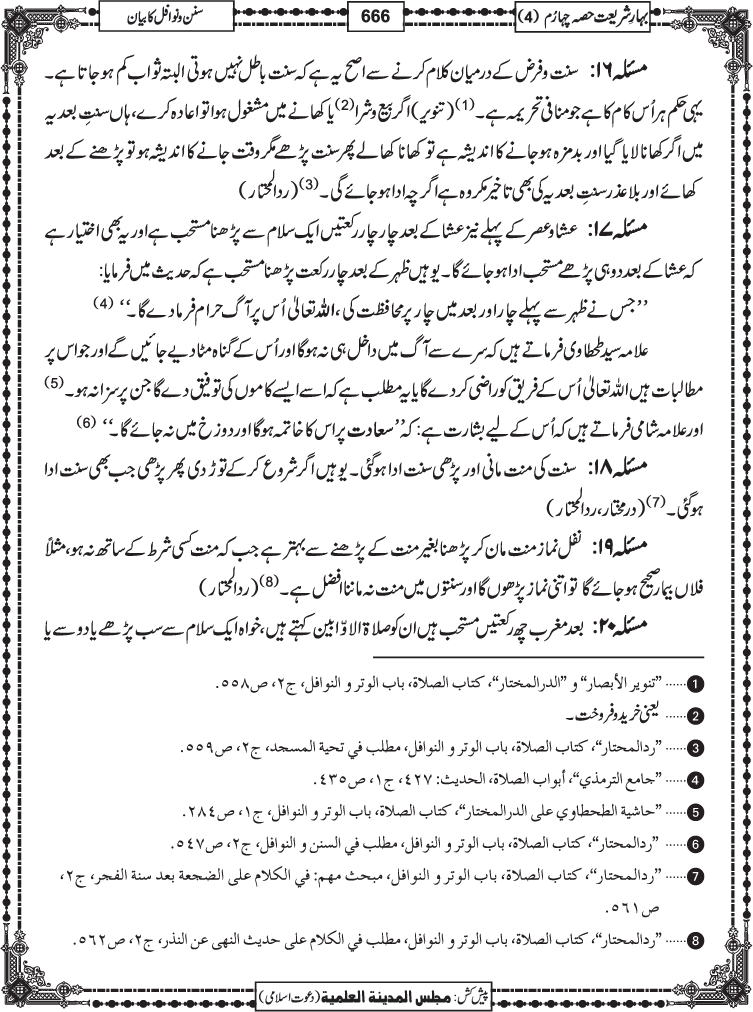 بہارِ شریعت حصہ چہارُم (4)
666
سنن و نوافل کا بیان
مسئلہ ۱۶: سنت و فرض کے درمیان کلام کرنے سے اصح یہ ہے کہ سنت باطل نہیں ہوتی البتہ ثواب کم ہو جاتا ہے۔
یہی حکم ہر اُس کام کا ہے جو منافی تحریمہ ہے۔(1) (تنویر) اگر بیع و شرا(2) یا کھانے میں مشغول ہوا تو اعادہ کرے، ہاں سنتِ بعدیہ
میں اگر کھانا لایا گیا اور بدمزہ ہو جانے کا اندیشہ ہے تو کھانا کھالے پھر سنت پڑھے مگر وقت جانے کا اندیشہ ہو تو پڑھنے کے بعد
کھائے اور بلا عذر سنتِ بعدیہ کی بھی تاخیر مکروہ ہے اگرچہ ادا ہو جائے گی۔(3) (ردالمحتار)
مسئلہ ۱۷: عشا و عصر کے پہلے نیز عشا کے بعد چار چار رکعتیں ایک سلام سے پڑھنا مستحب ہے اور یہ بھی اختیار ہے
کہ عشا کے بعد دو ہی پڑھے مستحب ادا ہو جائے گا۔ یوہیں ظہر کے بعد چار رکعت پڑھنا مستحب ہے کہ حدیث میں فرمایا:
’’جس نے ظہر سے پہلے چار اور بعد میں چار پر محافظت کی، اللہ تعالیٰ اُس پر آگ حرام فرما دے گا۔‘‘ (4)
علامہ سید طحطاوی فرماتے ہیں کہ سرے سے آگ میں داخل ہی نہ ہوگا اور اُس کے گناہ مٹا دیے جائیں گے اور جو اس پر
مطالبات ہیں اللہ تعالیٰ اُس کے فریق کو راضی کر دے گا یا یہ مطلب ہے کہ اسے ایسے کاموں کی توفیق دے گا جن پر سزا نہ ہو۔ (5)
اور علامہ شامی فرماتے ہیں کہ اُس کے لیے بشارت ہے: کہ ’’سعادت پر اس کا خاتمہ ہوگا اور دوزخ میں نہ جائے گا۔‘‘ (6)
مسئلہ ۱۸: سنت کی منت مانی اور پڑھی سنت ادا ہوگئی۔ یوہیں اگر شروع کر کے توڑ دی پھر پڑھی جب بھی سنت ادا
ہوگئی۔(7) (درمختار، ردالمحتار)
مسئلہ ۱۹: نفل نماز منت مان کر پڑھنا بغیر منت کے پڑھنے سے بہتر ہے جب کہ منت کسی شرط کے ساتھ نہ ہو، مثلاً
فلاں بیمار صحیح ہو جائے گا تو اتنی نماز پڑھوں گا اور سنتوں میں منت نہ ماننا افضل ہے۔(8) (ردالمحتار)
مسئلہ ۲۰: بعد مغرب چھ رکعتیں مستحب ہیں ان کو صلاۃ الاوّابین کہتے ہیں، خواہ ایک سلام سے سب پڑھے یا دو سے یا
1 ...... ”تنوير الأبصار“ و ”الدرالمختار“، كتاب الصلاة، باب الوتر و النوافل، ج٢، ص٥٥٨.
2 ...... یعنی خرید و فروخت۔
3 ...... ”ردالمحتار“، كتاب الصلاة، باب الوتر و النوافل، مطلب في تحية المسجد، ج٢، ص٥٥٩.
4 ...... ”جامع الترمذي“، أبواب الصلاة، الحديث: ٤٢٧، ج١، ص٤٣٥.
5 ...... ”حاشية الطحطاوي على الدرالمختار“، كتاب الصلاة، باب الوتر و النوافل، ج١، ص٢٨٤.
6 ...... ”ردالمحتار“، كتاب الصلاة، باب الوتر و النوافل، مطلب في السنن و النوافل، ج٢، ص٥٤٧.
7 ...... ”ردالمحتار“، كتاب الصلاة، باب الوتر و النوافل، مبحث مهم: في الكلام على الضجعة بعد سنة الفجر، ج٢،
ص٥٦١.
8 ...... ”ردالمحتار“، كتاب الصلاة، باب الوتر و النوافل، مطلب في الكلام على حديث النهى عن النذر، ج٢، ص٥٦٢.
پیش کش: مجلس المدینة العلمیة (دعوتِ اسلامی)